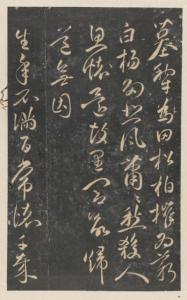 墓犁為田松柏摧為薪
白楊多悲風蕭〻愁殺人
思還故里閭欲歸
道無因
生年不滿百常懷千歲